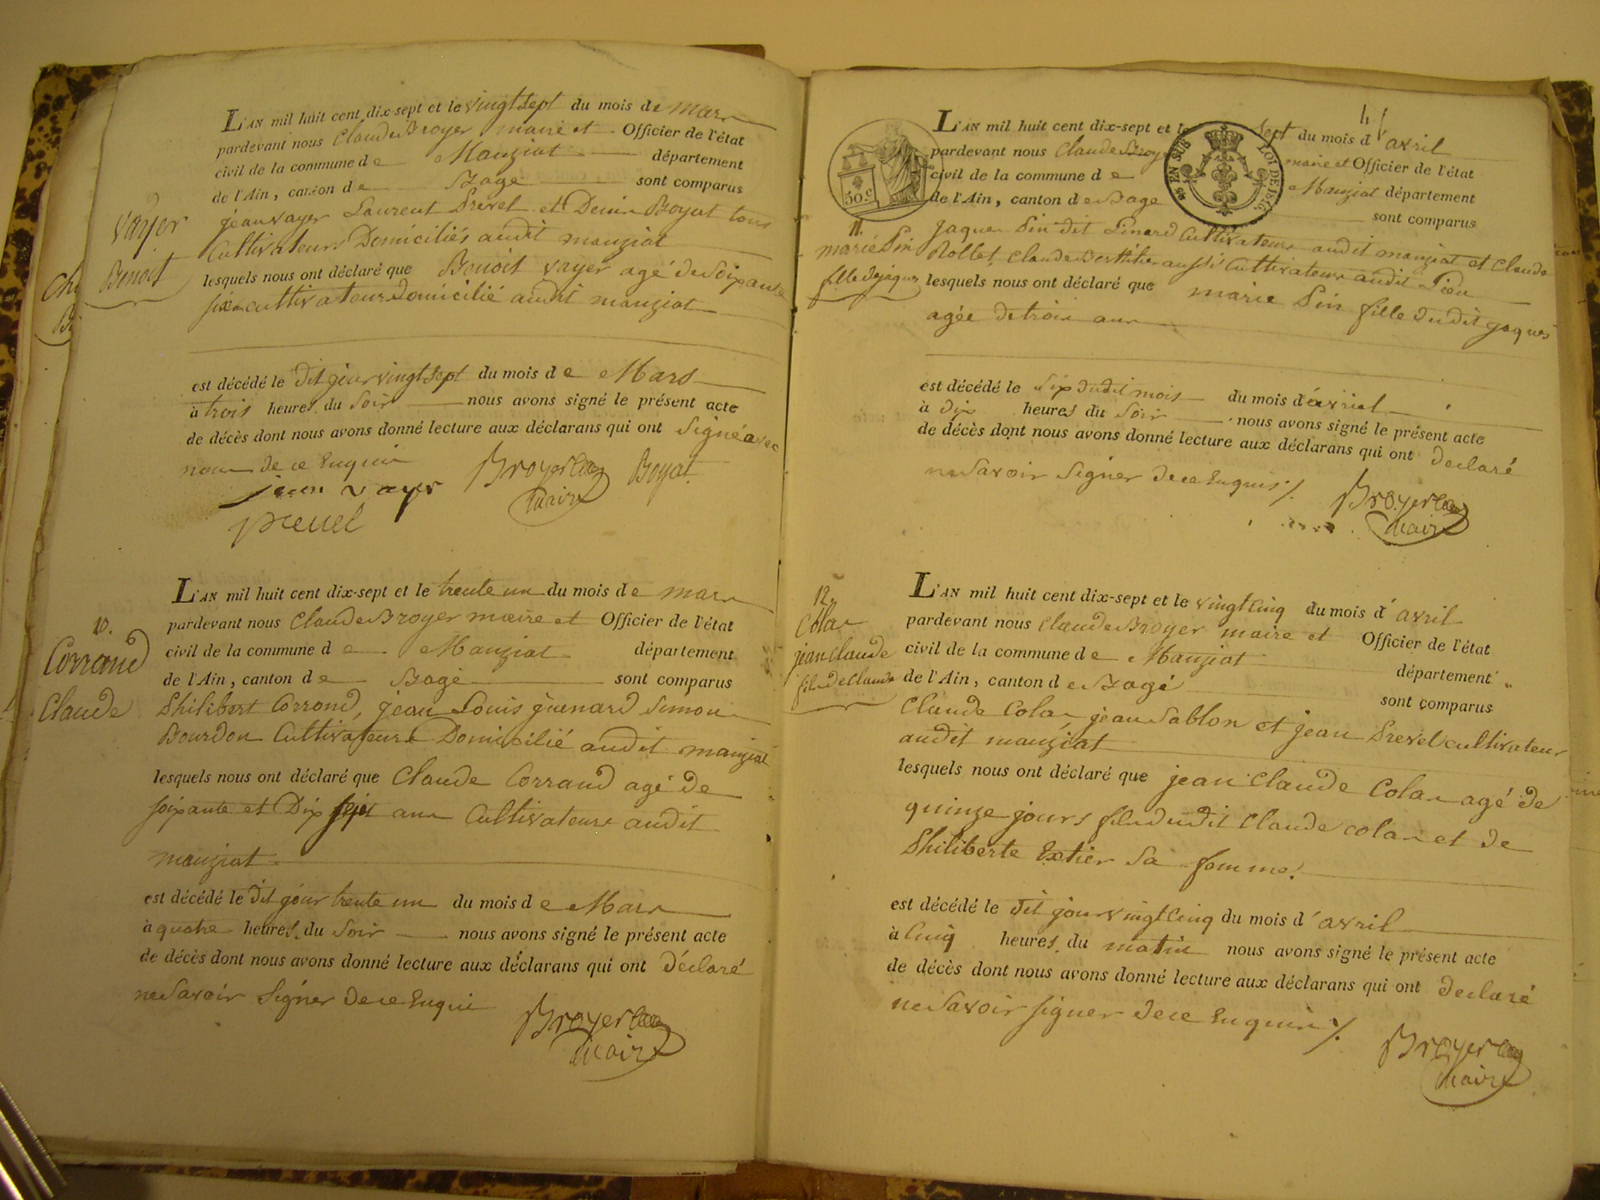 L'AN mil huit cent dix-sept et le vingt sept du mois de mars
pardevant nous Claude Broyer maire et Officier de l'état
civil de la commune de Manziat département
de l'Ain, canton de Bagé sont comparus
jean vayer Laurent Prevel et Denis Boyat tous
Cultivateurs Domiciliés audit manziat
vayer
Benoit
lesquels nous ont déclaré que Benoit vayer agé de Soixante
six cultivateur Domicilié audit manziat
est décédé le dit jour vingt sept du mois de Mars
à trois heures du Soir nous avons signé le présent acte
de décès dont nous avons donné lecture aux déclarans qui ont Signé avec
nous de ce Enquis
jean vayer Broyer maire Boyat
prevel
L'AN mil huit cent dix-sept et le trente un du mois de mars
10.
Corrand
Claude
pardevant nous Claude Broyer maire et Officier de l'état
civil de la commune de Manziat département
de l'Ain, canton de Bagé sont comparus
Philibert Corrond, jean Louis guenard Simon
Bourdon Cultivateurs Domicilié audit manziat
lesquels nous ont déclaré que Claude Corrand agé de
soixante et Dix sept ans Cultivateur audit
manziat
est décédé le dit jour trente un du mois de Mars
à quatre heures du Soir nous avons signé le présent acte
de décès dont nous avons donné lecture aux déclarans qui ont déclaré
ne Savoir Signer de ce Enquis
Broyer maire
L'AN mil huit cent dix-sept et le sept du mois d'avril
pardevant nous Claude Broyer maire et Officier de l'état
civil de la commune de Manziat département
de l'Ain, canton de Bagé sont comparus
50 c.
EN SUS
LOI DE
11.
marie Pin
fille de jaques
jaques Pin dit Pinard Cultivateur audit manziat et Claude
Rollet, Claude Berthilier aussi Cultivateurs audit Lieu
lesquels nous ont déclaré que marie Pin fille dudit jaques
agée de trois ans
est décédé le six dudit mois du mois d'avril
à dix heures du Soir nous avons signé le présent acte
de décès dont nous avons donné lecture aux déclarans qui ont declaré
ne Savoir Signer de ce Enquis
Broyer maire
L'AN mil huit cent dix-sept et le vingt Cinq du mois d'avril
12.
Colas
jean Claude
fils de Claude
pardevant nous Claude Broyer maire et Officier de l'état
civil de la commune de Manziat département
de l'Ain, canton de Bagé sont comparus
Claude Colas jean Sablon et jean Prevel cultivateurs
audit manziat
lesquels nous ont déclaré que jean Claude Colas agé de
quinze jours fils dudit Claude colas et de
Philiberte Extier Sa femme.
est décédé le dit jour vingt Cinq du mois d'avril
à Cinq heures du matin nous avons signé le présent acte
de décès dont nous avons donné lecture aux déclarans qui ont declaré
ne Savoir Signer de ce Enquis
Broyer maire